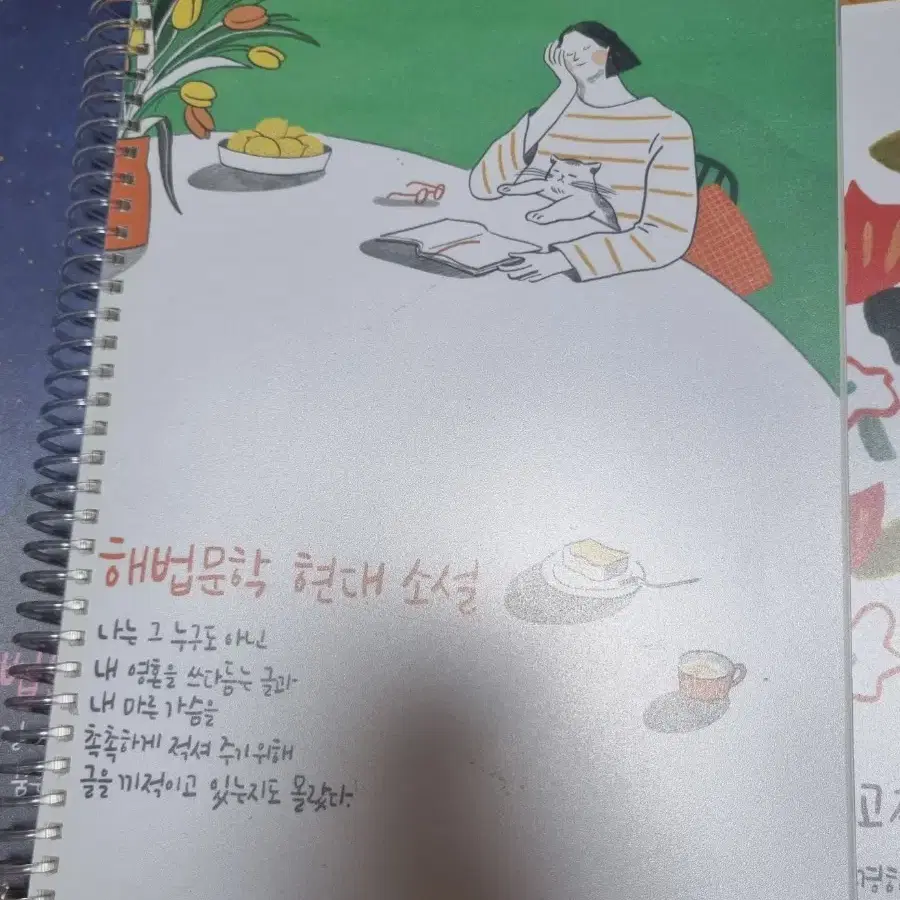 해법문학 현대 소설
나는 그 누구도 아닌
내 영혼을 쓰다듬는 글과
내 마른 가슴을
촉촉하게 적셔 주기위해
글을 끼적이고 있는지도 몰랐다.